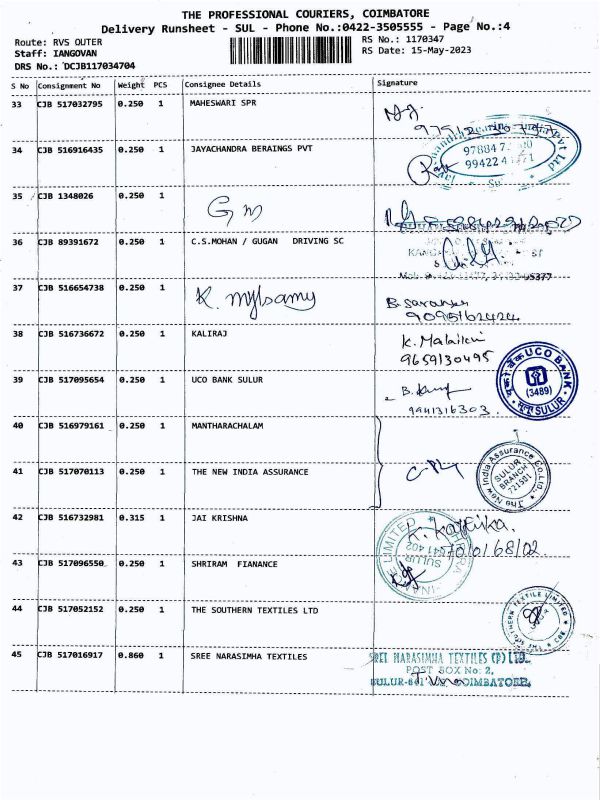 THE PROFESSIONAL COURIERS, COIMBATORE
Delivery Runsheet - SUL - Phone No.:0422-3505555 - Page No.:4
Route: RVS OUTER
Staff: IANGOVAN
DRS No.: DCJB117034704
RS No.: 1170347
RS Date: 15-May-2023
S No Consignment No Weight PCS Consignee Details Signature
33 CJB 517032795 0.250 1 MAHESWARI SPR
34 CJB 516916435 0.250 1 JAYACHANDRA BERAINGS PVT
35 CJB 1348026 0.250 1
36 CJB 89391672 0.250 1 C.S.MOHAN / GUGAN DRIVING SC
37 CJB 516654738 0.250 1 K. mylsamy B. Saranya
9095162424
38 CJB 516736672 0.250 1 KALIRAJ K.
9659130495
39 CJB 517095654 0.250 1 UCO BANK SULUR B.
9941316303
UCO BANK
(3489)
SULUR
40 CJB 516979161 0.250 1 MANTHARACHALAM
41 CJB 517070113 0.250 1 THE NEW INDIA ASSURANCE
The New India Assurance Co.Ltd.
SULUR
BRANCH
721501
42 CJB 516732981 0.315 1 JAI KRISHNA K. Karthika.
43 CJB 517096550 0.250 1 SHRIRAM FIANANCE
44 CJB 517052152 0.250 1 THE SOUTHERN TEXTILES LTD
45 CJB 517016917 0.860 1 SREE NARASIMHA TEXTILES
SREE NARASIMHA TEXTILES (P) LTD.
POST BOX No: 2,
COIMBATORE.